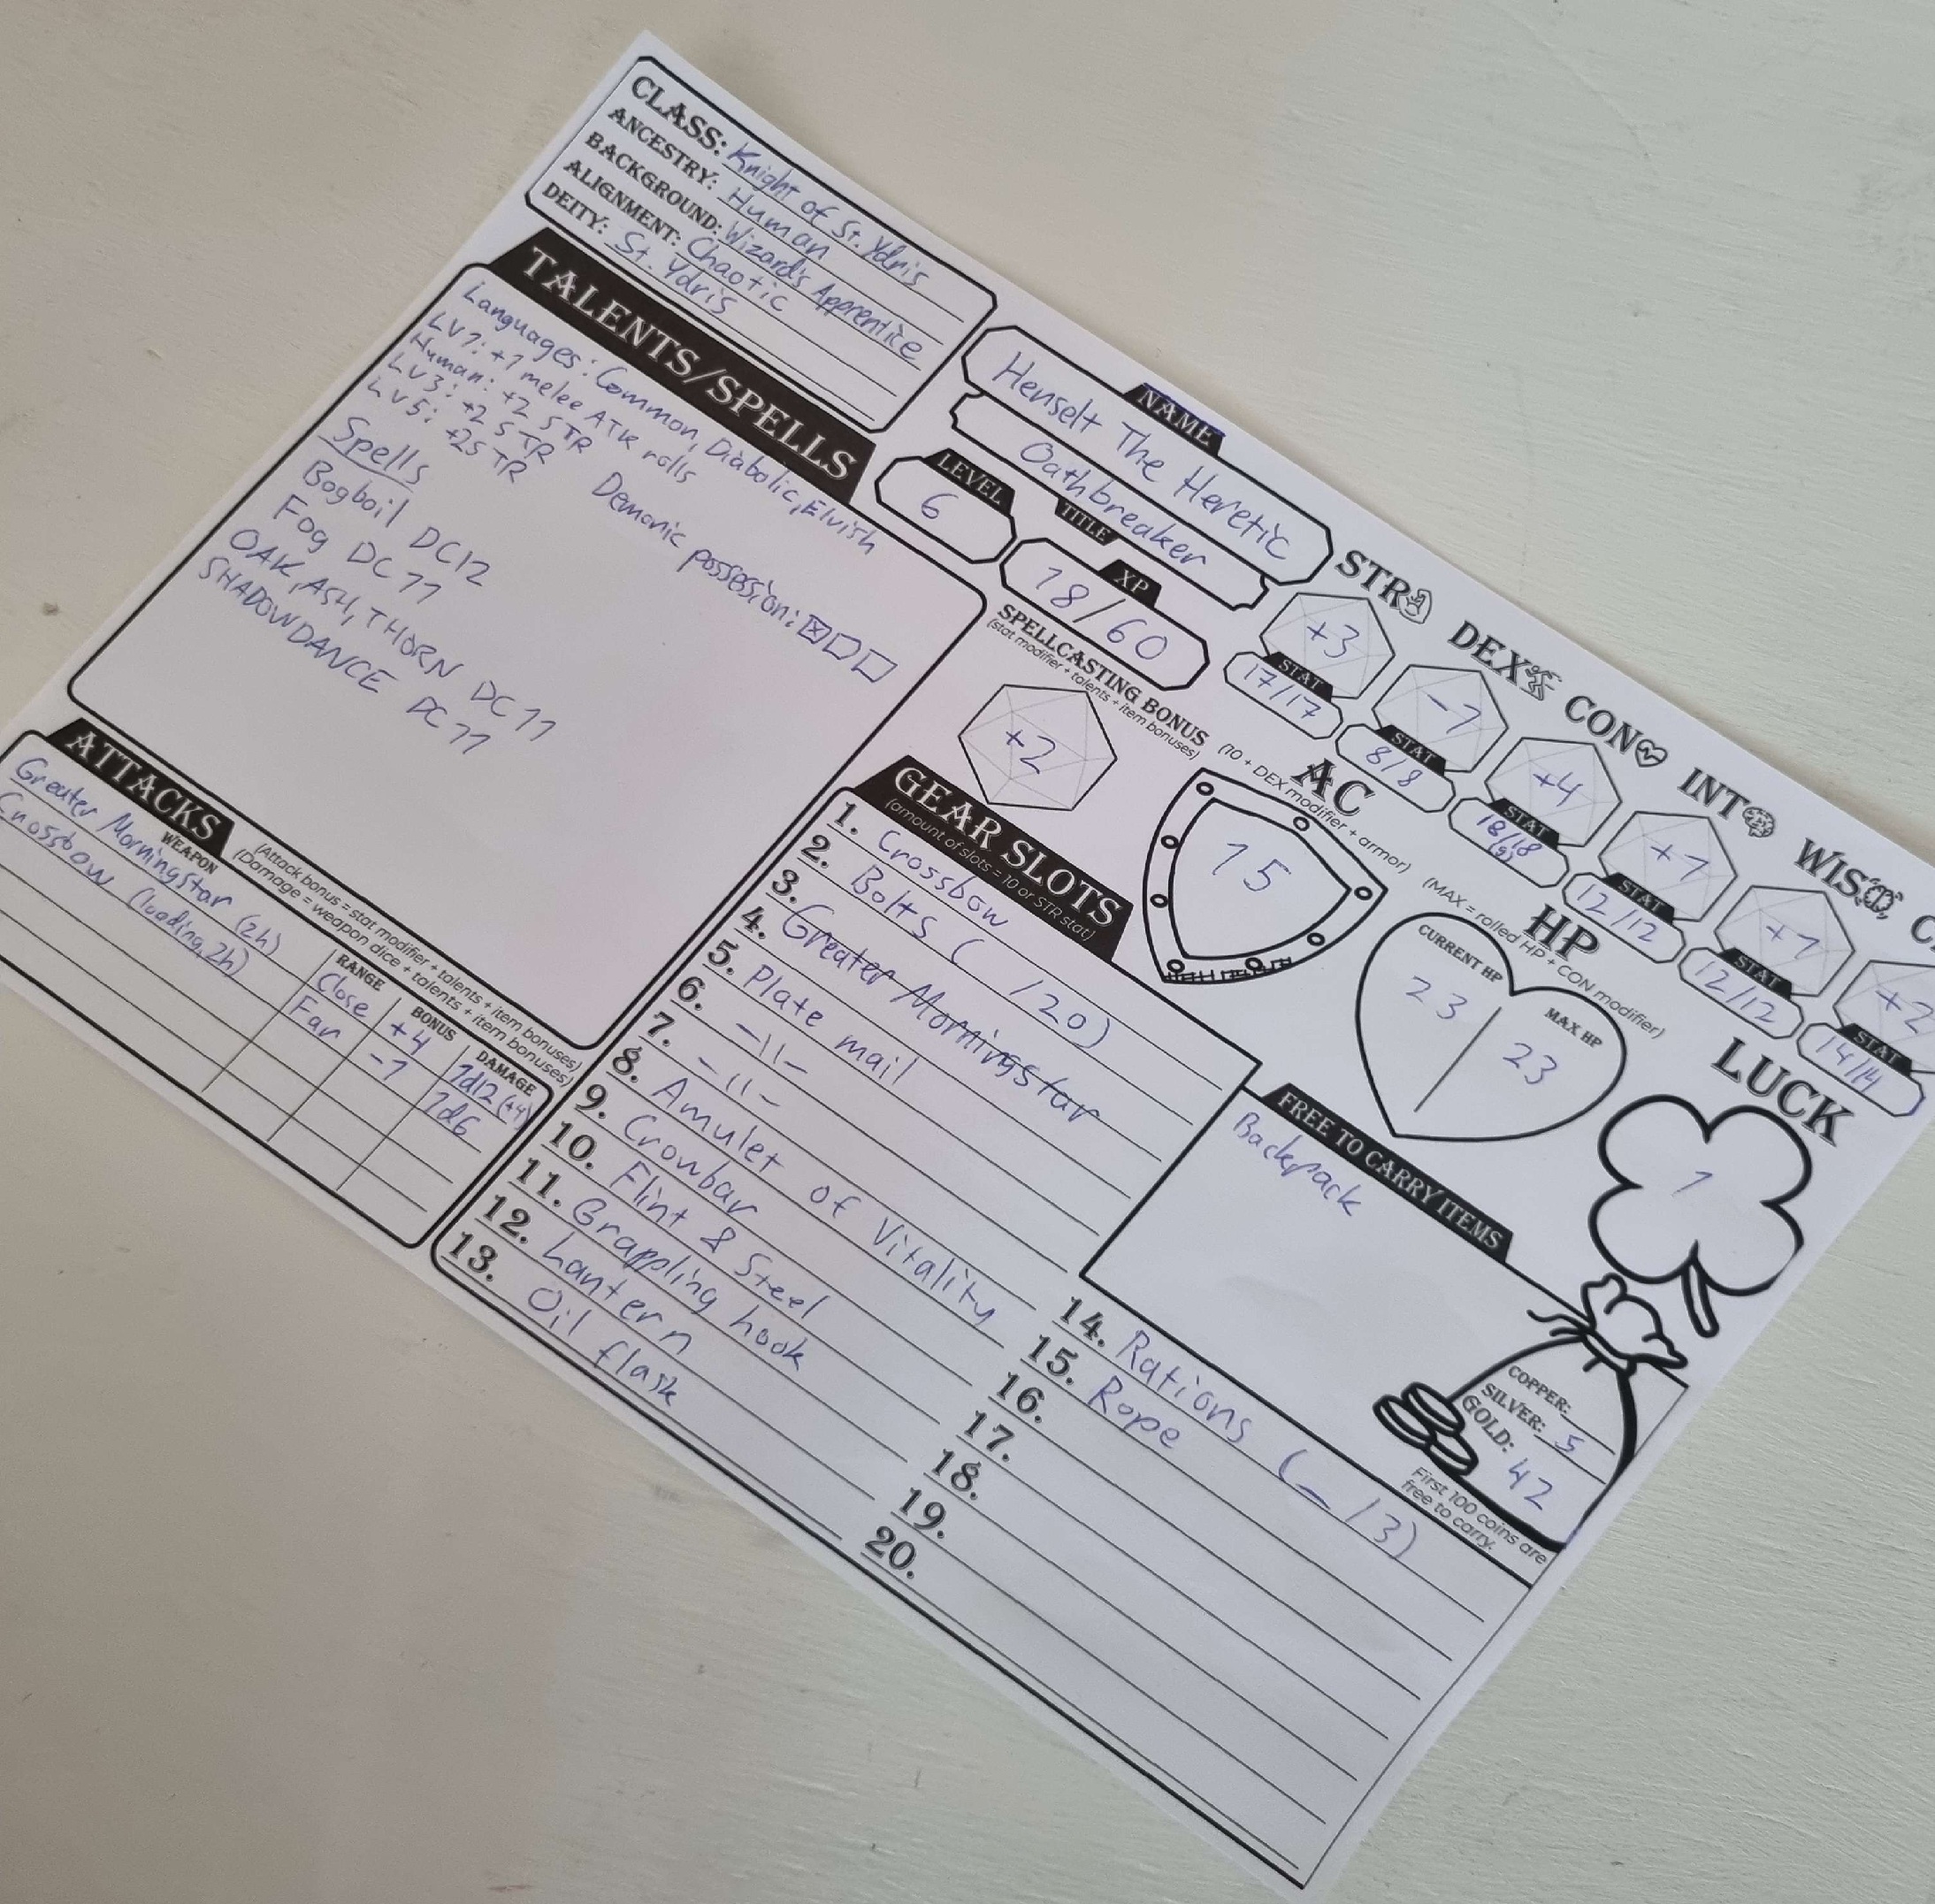 CLASS: Knight of St. Ydris
ANCESTRY: Human
BACKGROUND: Wizard's Apprentice
ALIGNMENT: Chaotic
DEITY: St. Ydris
NAME
Henselt The Heretic
Oathbreaker
TITLE
LEVEL
6
XP
18/60
TALENTS/SPELLS
Languages: Common, Diabolic, Elvish
LV1: +1 melee ATK rolls
Human: +2 STR
LV3: +2 STR
LV5: +2STR
Demonic possession:
Spells
Bogboil DC12
Fog DC 11
OAK, ASH, THORN DC 11
SHADOWDANCE DC 11
SPELLCASTING BONUS
(stat modifier + talents + item bonuses)
+2
STR DEX CON INT WIS
+3 -1 +4 +1 +1 +2
STAT STAT STAT STAT STAT STAT
17/17 8/8 18/18 (9) 12/12 12/12 14/14
AC
(10 + DEX modifier + armor)
15
HP
(MAX = rolled HP + CON modifier)
CURRENT HP
23
MAX HP
23
LUCK
1
ATTACKS
(Attack bonus = stat modifier + talents + item bonuses)
(Damage = weapon dice + talents + item bonuses)
WEAPON RANGE BONUS DAMAGE
Greater Morningstar (2h) Close +4 1d12 (+4)
Crossbow (loading, 2h) Far -1 1d6
GEAR SLOTS
(amount of slots = 10 or STR stat)
1. Crossbow
2. Bolts ( /20)
3.
4. Greater Morningstar
5. Plate mail
6. -11-
7. -11-
8. Amulet of Vitality
9. Crowbar
10. Flint & Steel
11. Grappling hook
12. Lantern
13. Oil flask
14. Rations (_/3)
15. Rope
16.
17.
18.
19.
20.
FREE TO CARRY ITEMS
Backpack
COPPER:
SILVER: 5
GOLD: 42
First 100 coins are
free to carry.